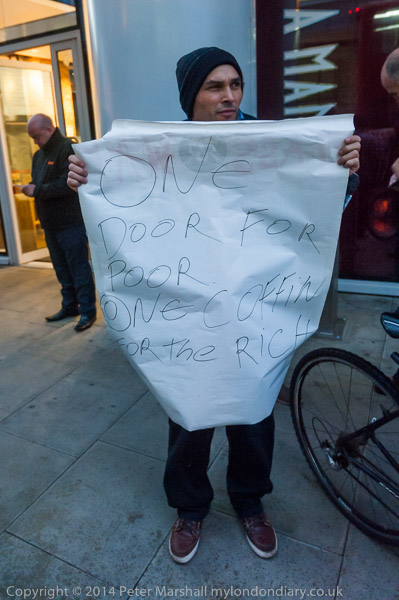 A MAN
ONE
DOOR FOR
POOR.
ONE COFFIN
FOR The RICH
Copyright © 2014 Peter Marshall mylondondiary.co.uk